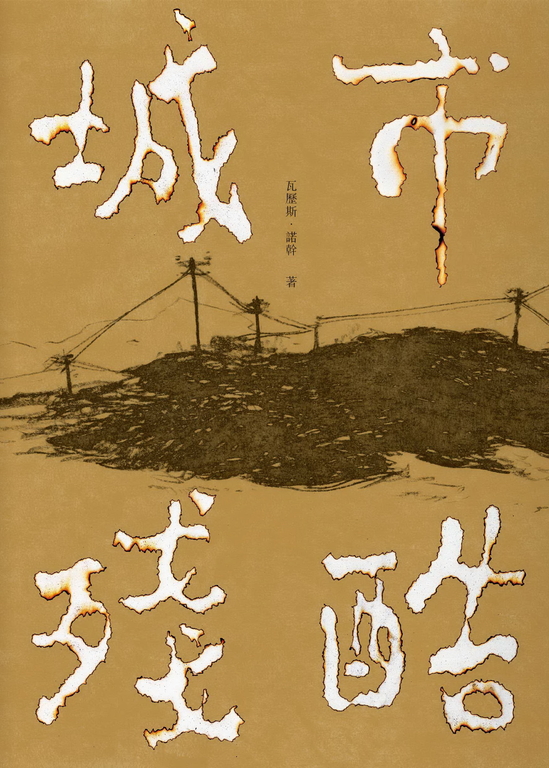 城市
瓦歷斯・諾幹 著
殘酷